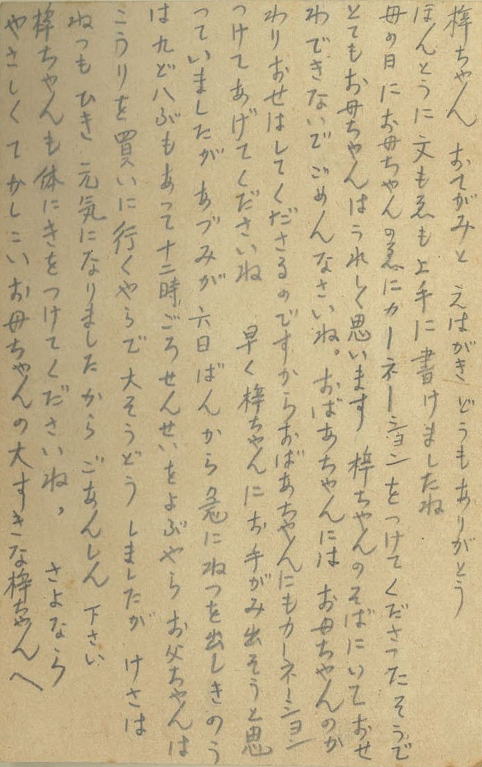 梓ちゃん おてがみと えはがき どうもありがとう
ほんとうに 文もゑも上手に 書けましたね
母の日にお母ちゃんの為にカーネーションをつけてくださったそうで
とてもお母ちゃんはうれしく思います 梓ちゃんのそばにいておせ
わできないで ごめんなさいね。おばあちゃんには お母ちゃんのか
わりおせはしてくださるのですからおばあちゃんにもカーネーション
つけてあげてくださいね 早く梓ちゃんにお手がみ出そうと思
っていましたが あづみが 六日ばんから急にねつを出しきのう
は九ど八ぶもあって十二時ごろせんせいをよぶやら お父ちゃんは
こうりを買いに行くやらで大そうどう しましたが けさは
ねつもひき 元気になりましたから ごあんしん 下さい
梓ちゃんも体にきをつけてくださいね。 さよなら
やさしくてかしこいお母ちゃんの大すきな梓ちゃんへ